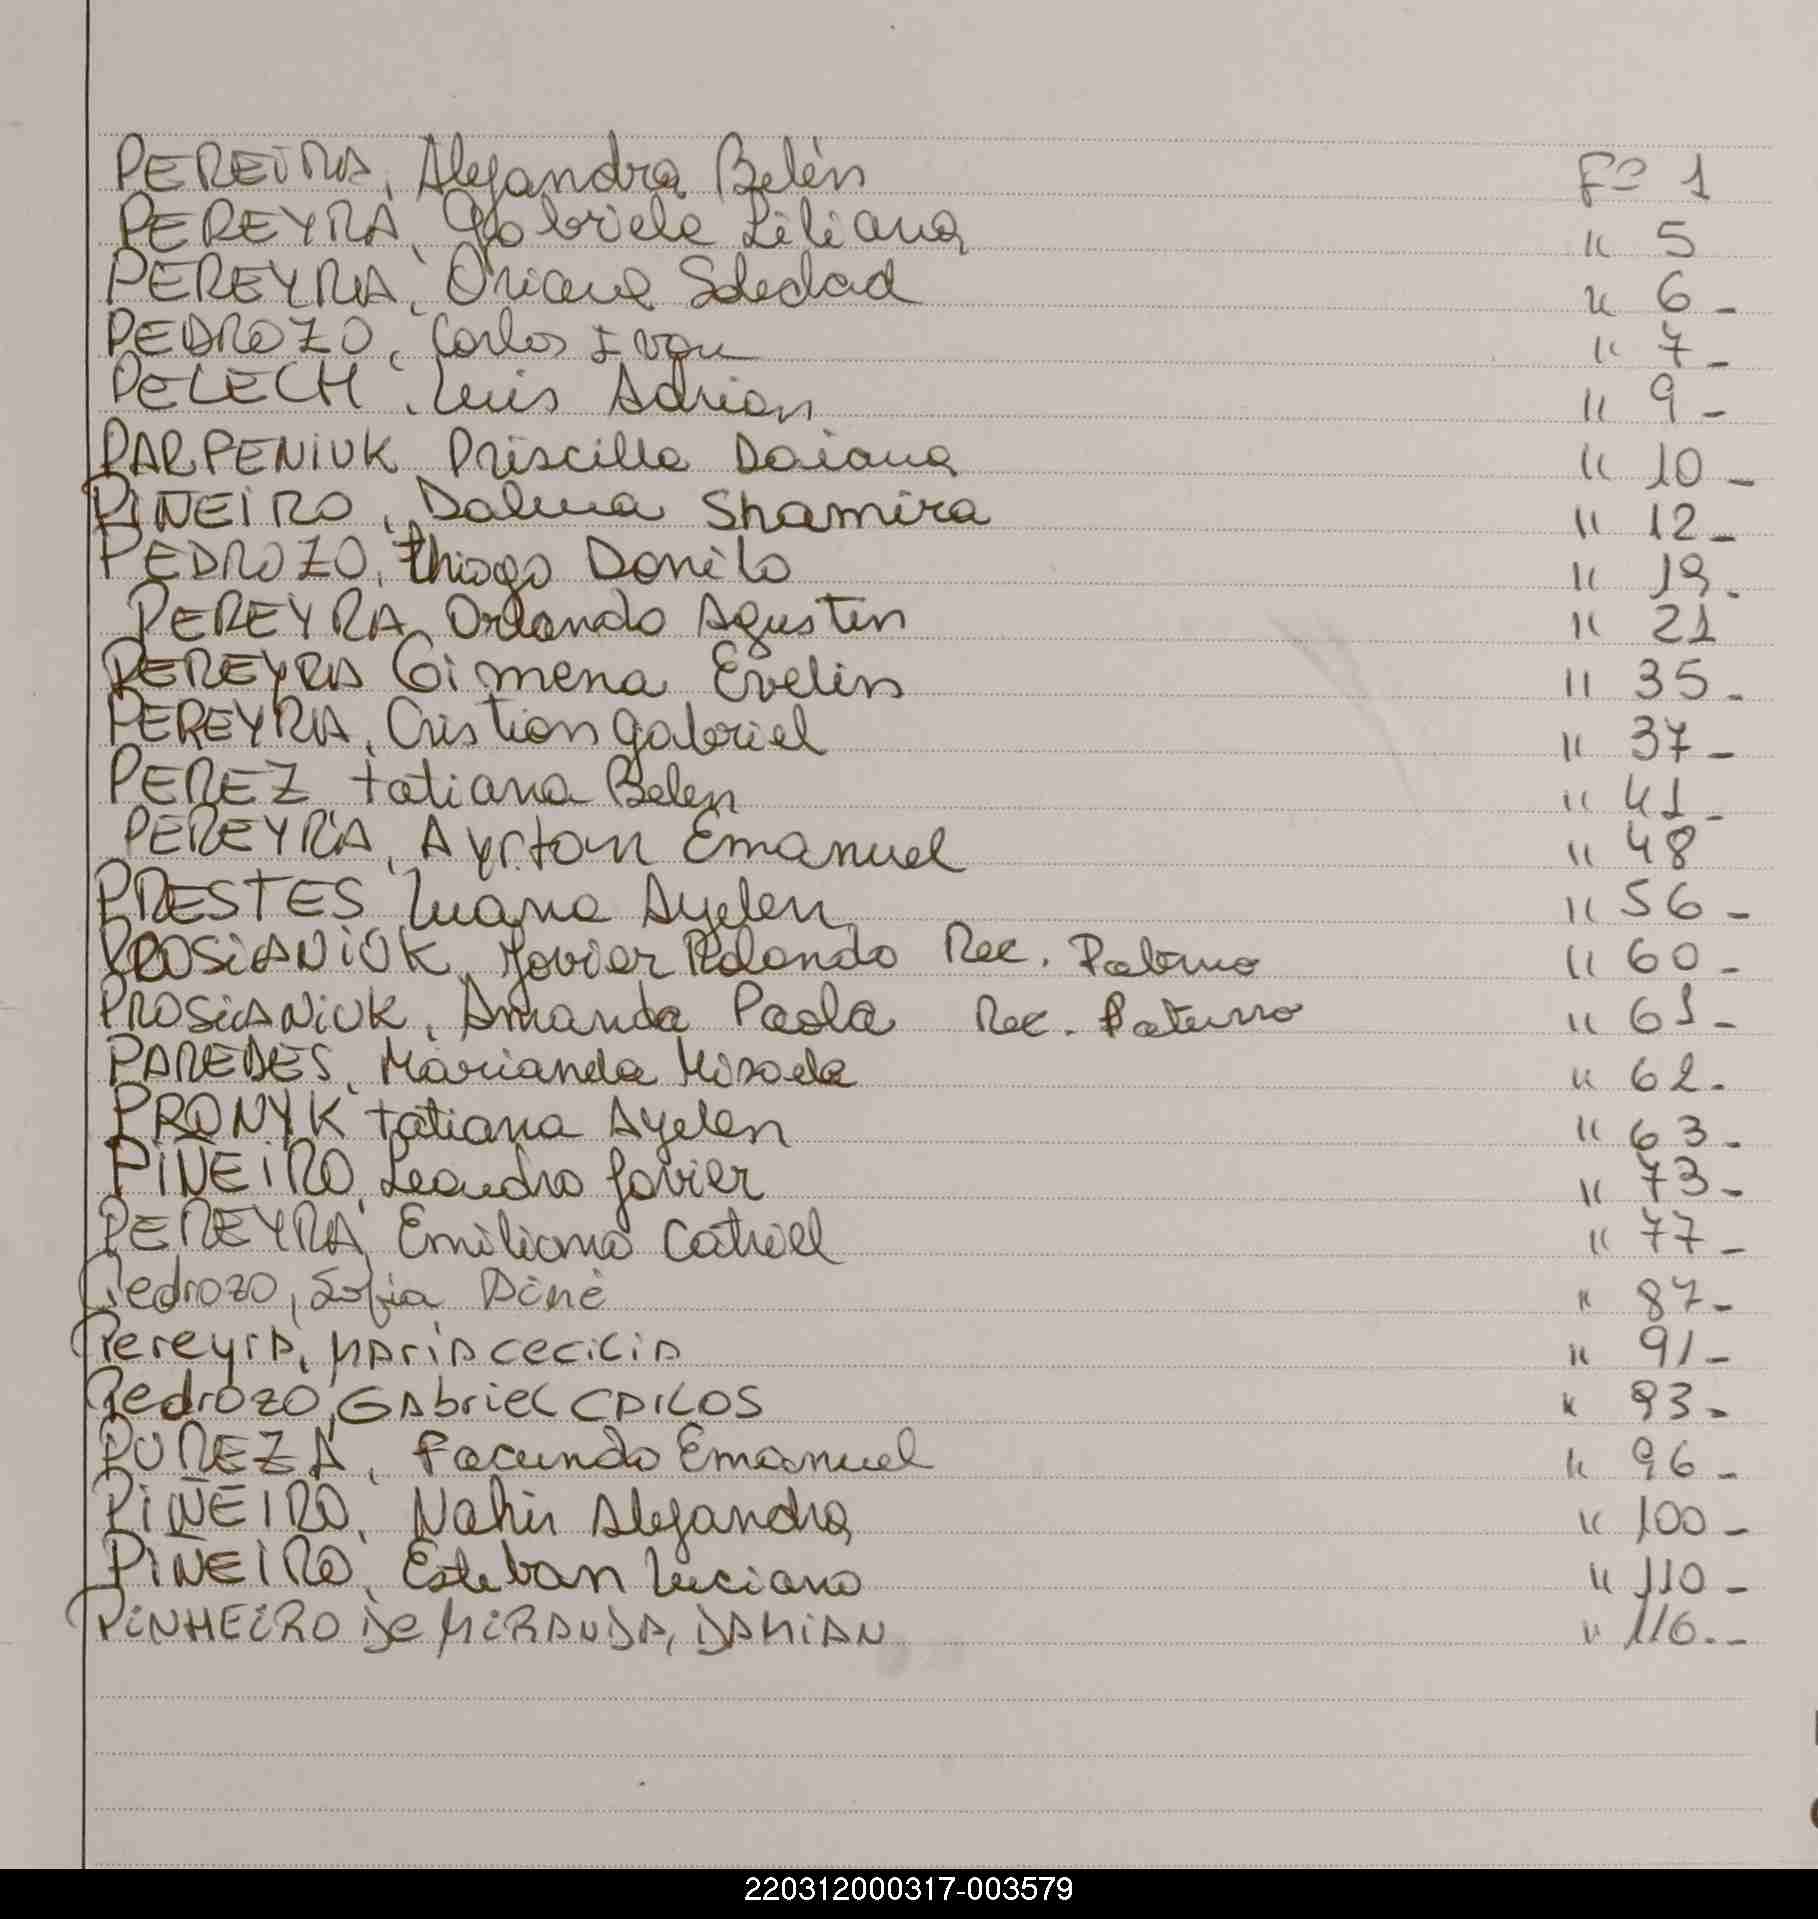 PEREIRA, Alejandra Belén Fº 1
PEREYRA, Gabriela Liliana " 5
PEREYRA, Oriana Soledad " 6 -
PEDROZO, Carlos Ivan " 7 -
PELECH, Luis Adrian " 9 -
PARPENIUK Priscilla Daiana " 10 -
PIÑEIRO, Dalma Shamira " 12 -
PEDROZO, Thiago Danilo " 19 .
PEREYRA Orlando Agustin " 21
PEREYRA Gimena Evelin " 35 -
PEREYRA, Cristian gabriel " 37 -
PEREZ tatiana Belen " 41 -
PEREYRA, Ayrton Emanuel " 48
PRESTES Luana Ayelen " 56 -
PROSIANIUK, Javier Rolando Rec. Paterno " 60 -
PROSIANIUK, Amanda Paola Rec. Paterno " 61 -
PAREDES, Marianela " 62 -
PRONYK tatiana Ayelen " 63 -
PIÑEIRO, Leandro Javier " 73 -
PEREYRA Emiliano Catriel " 77 -
Pedrozo, Sofia " 87 -
Pereyra, María cecilia " 91 -
Pedrozo, Gabriel Carlos " 93 -
PUREZA, Facundo Emanuel " 96 -
PIÑEIRO, Nahir Alejandra " 100 -
PIÑEIRO, Esteban Luciano " 110 -
PINHEIRO De MIRANDA, DAMIAN " 116.--
220312000317-003579